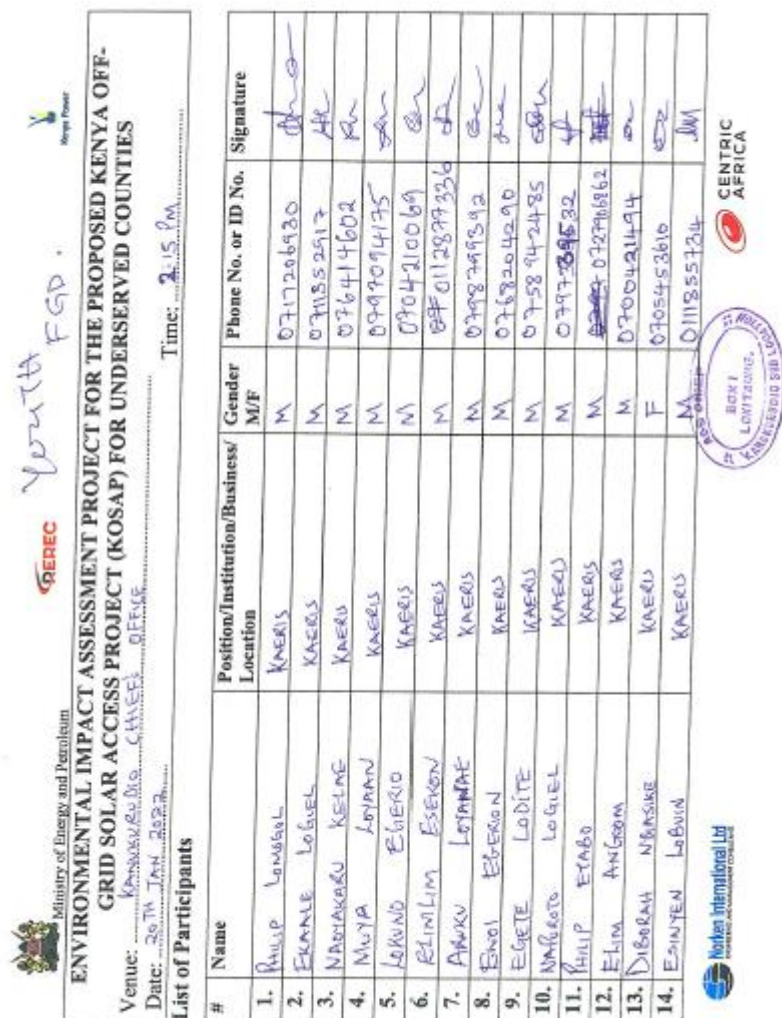 Ministry of Energy and Petroleum
REREC
YOUTH FGD.
Kenya Power
ENVIRONMENTAL IMPACT ASSESSMENT PROJECT FOR THE PROPOSED KENYA OFF-
GRID SOLAR ACCESS PROJECT (KOSAP) FOR UNDERSERVED COUNTIES
Venue: CHIEFS OFFICE
Date: 20TH JAN 2022 Time: 2:15 PM
List of Participants
# Name Position/Institution/Business/ Location Gender M/F Phone No. or ID No. Signature
1. PHILIP LOMOGOL KAERIS M 0717206930
2. EKAALE LOGIEL KAERIS M 0711352917
3. NADYAKARU KELAE KAERIS M 0764114602
4. MUYA LOYAAN KAERIS M 0797094175
5. LOKUNO EGERIO KAERIS M 0704210069
6. ELIMLIM ESEKON KAERIS M 0112877336
7. LOYANAE KAERIS M 0798799392
8. EGERION KAERIS M 0768204290
9. EGETE LODITE KAERIS M 0758942485
10. NAPEROTO LOGIEL KAERIS M
11. PHILIP ETABO KAERIS M 0727906862
12. ELIM ANGROM KAERIS M 0700421494
13. DIBORAH NGASIKE KAERIS F 0705453610
14. ESINYEN LOBUIN KAERIS M 0111855734
Norken International Ltd
BOX 1
LOKITAUNG.
CENTRIC
AFRICA